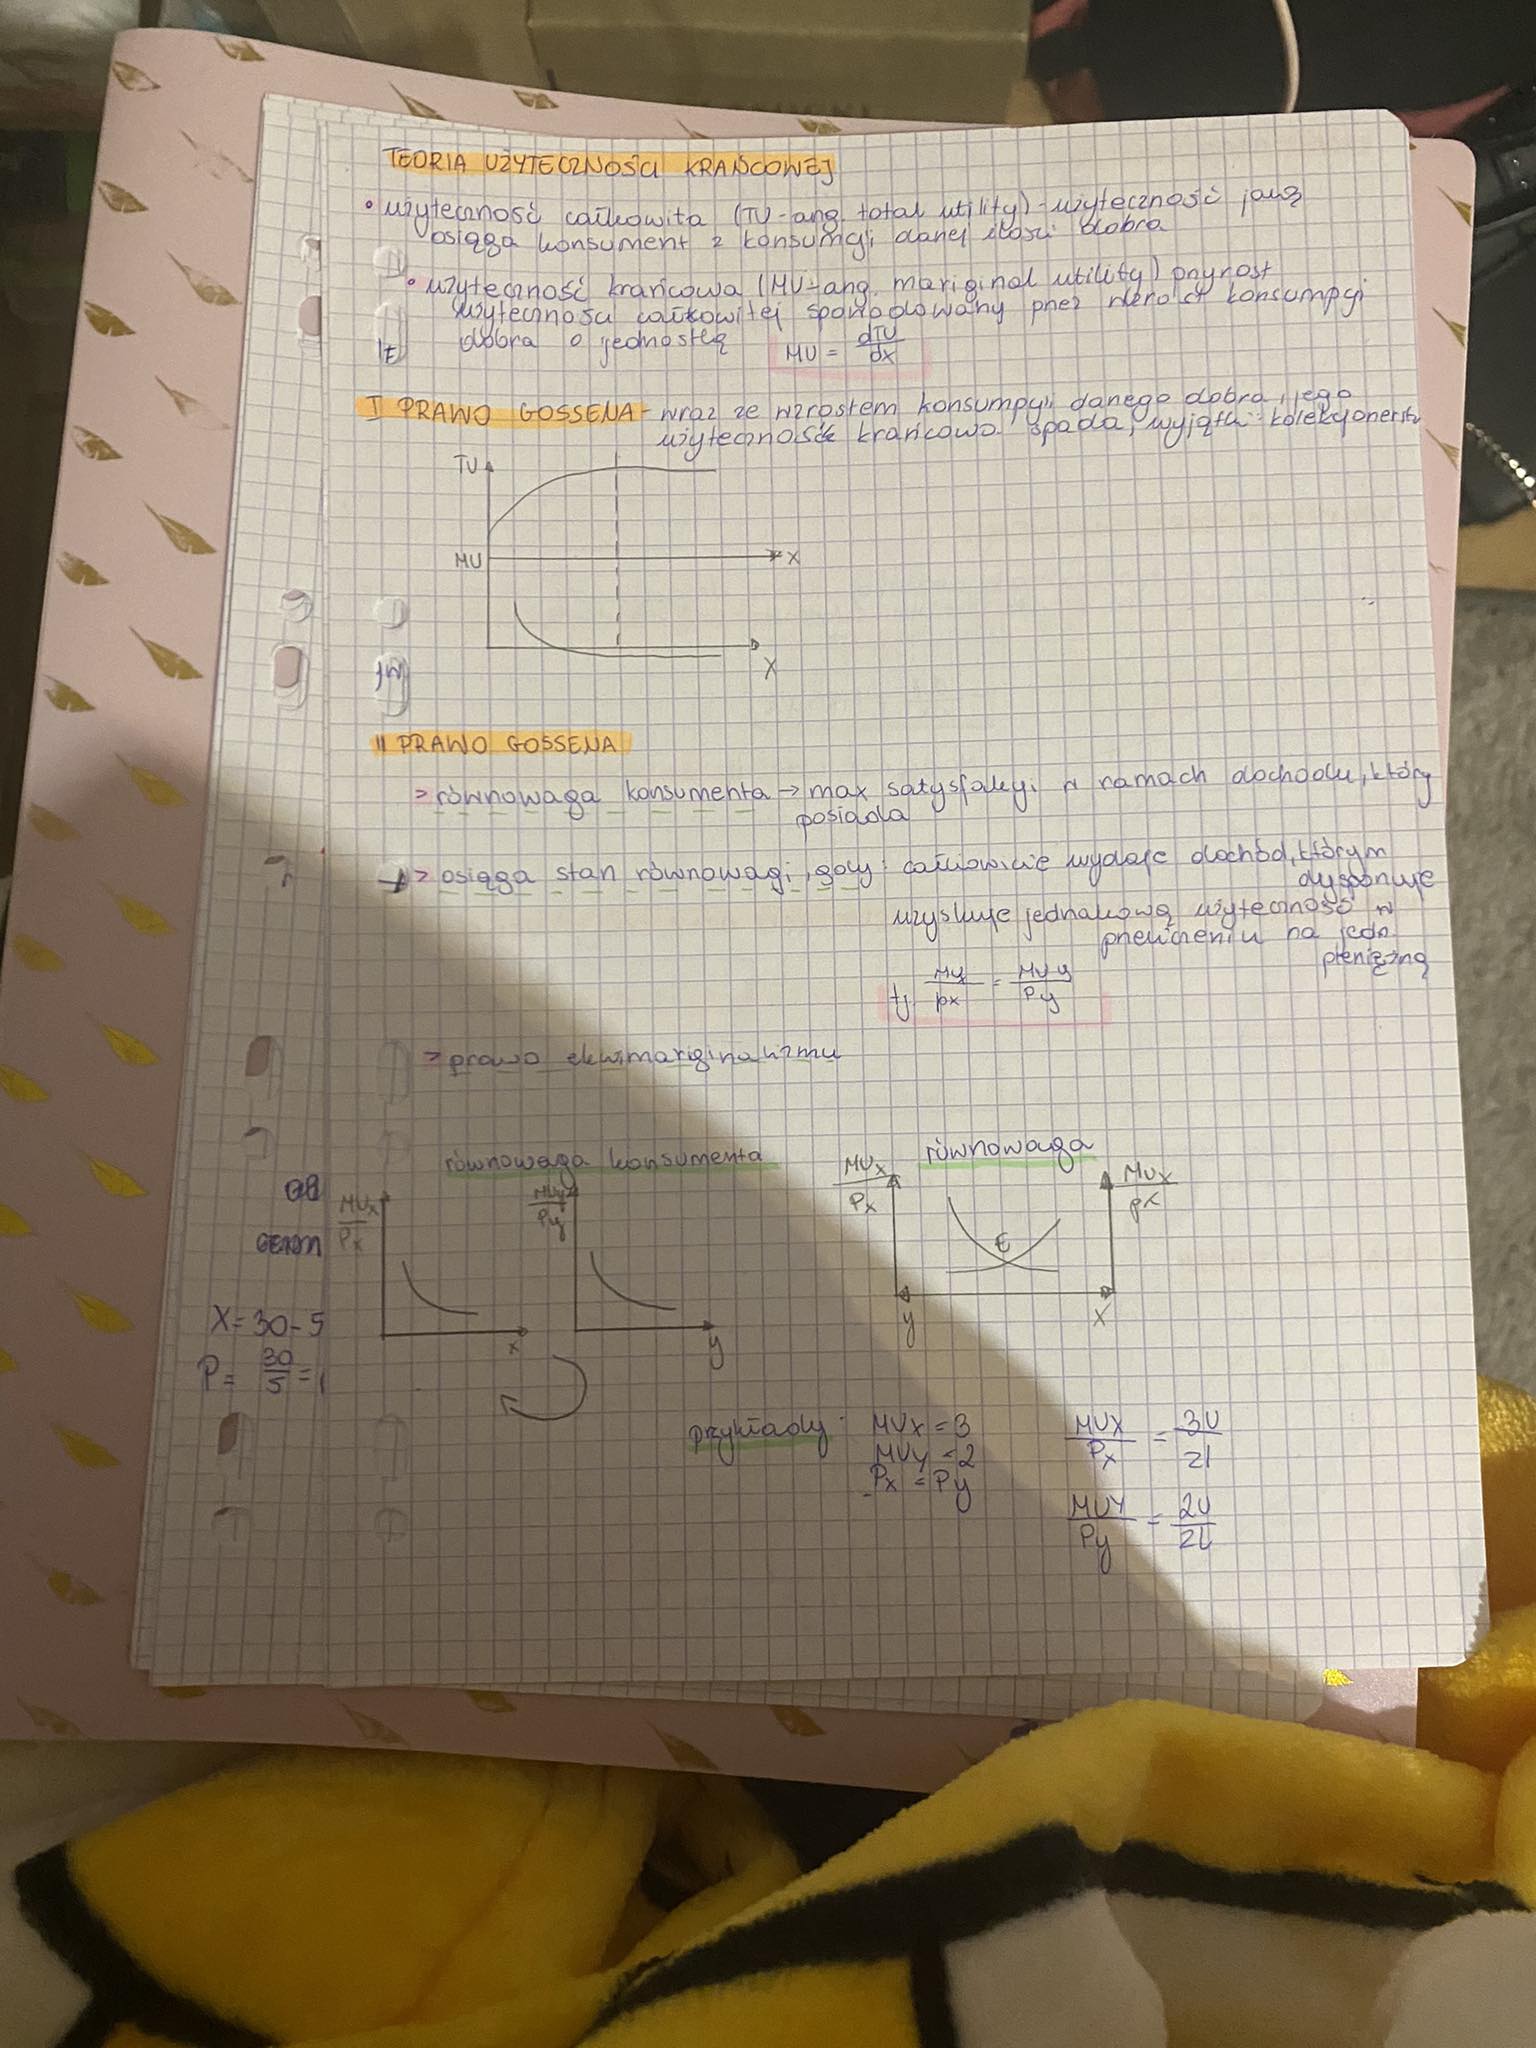 TEORIA UŻYTECZNOŚCI KRAŃCOWEJ
• użyteczność całkowita (TU-ang. total utility)-użyteczność jaką
osiąga konsument z konsumcji danej ilości dobra
• użyteczność krańcowa (MU-ang. mariginal utility) przyrost
użyteczności całkowitej spowodowany przez wzrost konsumpcji
dobra o jednostkę MU = dTU/dx
I PRAWO GOSSENA - wraz ze wzrostem konsumpcji danego dobra, jego
użyteczność krańcowa spada, wyjątki: kolekcjonerstw
TU
MU
X
X
II PRAWO GOSSENA
> równowaga konsumenta → max satysfakcji w ramach dochodu, który
posiada
> osiąga stan równowagi, gdy: całkowicie wydaje dochód, którym
dysponuje
uzyskuje jednakową użyteczność w
przeliczeniu na jedn.
pieniężną
tj Mx/px = MUy/Py
> prawo ekwimariginalizmu
równowaga konsumenta
równowaga
MUx/Px
MUy/Py
MUx/Px
MUx/px
E
x
y
y
X
X = 30-5
P = 30/5 =
przykłady: MUx = 3
MUy = 2
Px = Py
MUX/Px = 3U/zl
MUY/Py = 2U/zl